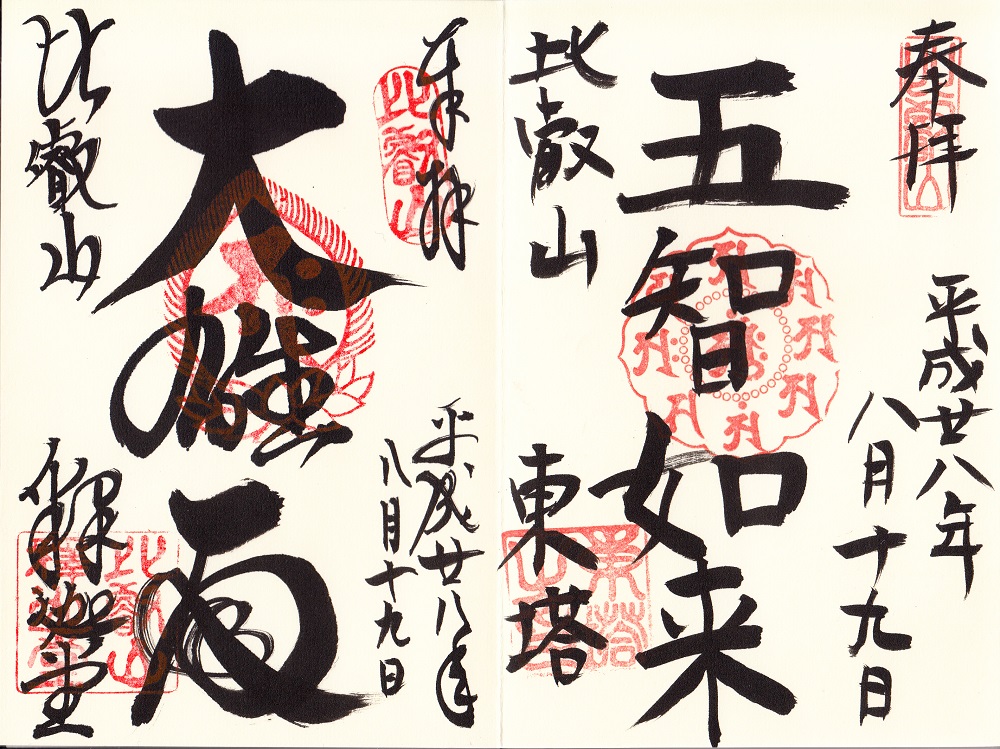 奉拝
平成廿八年
八月十九日
五智如来
比叡山
東塔
奉拝
比叡山
平成廿八年
八月十九日
大雄殿
比叡山
釋迦堂
比叡山